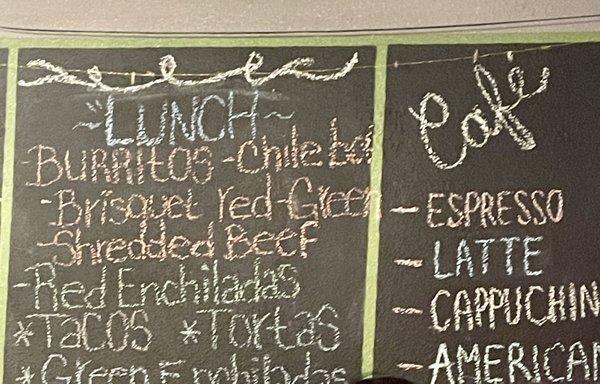 ~LUNCH~
-BURRITOS -Chile
-Brisquet Red-Green
-Shredded BEEF
-Red Enchiladas
*TACOS *TORTAS
*Green Enchiladas
Café
- ESPRESSO
- LATTE
- CAPPUCHIN
- AMERICAN